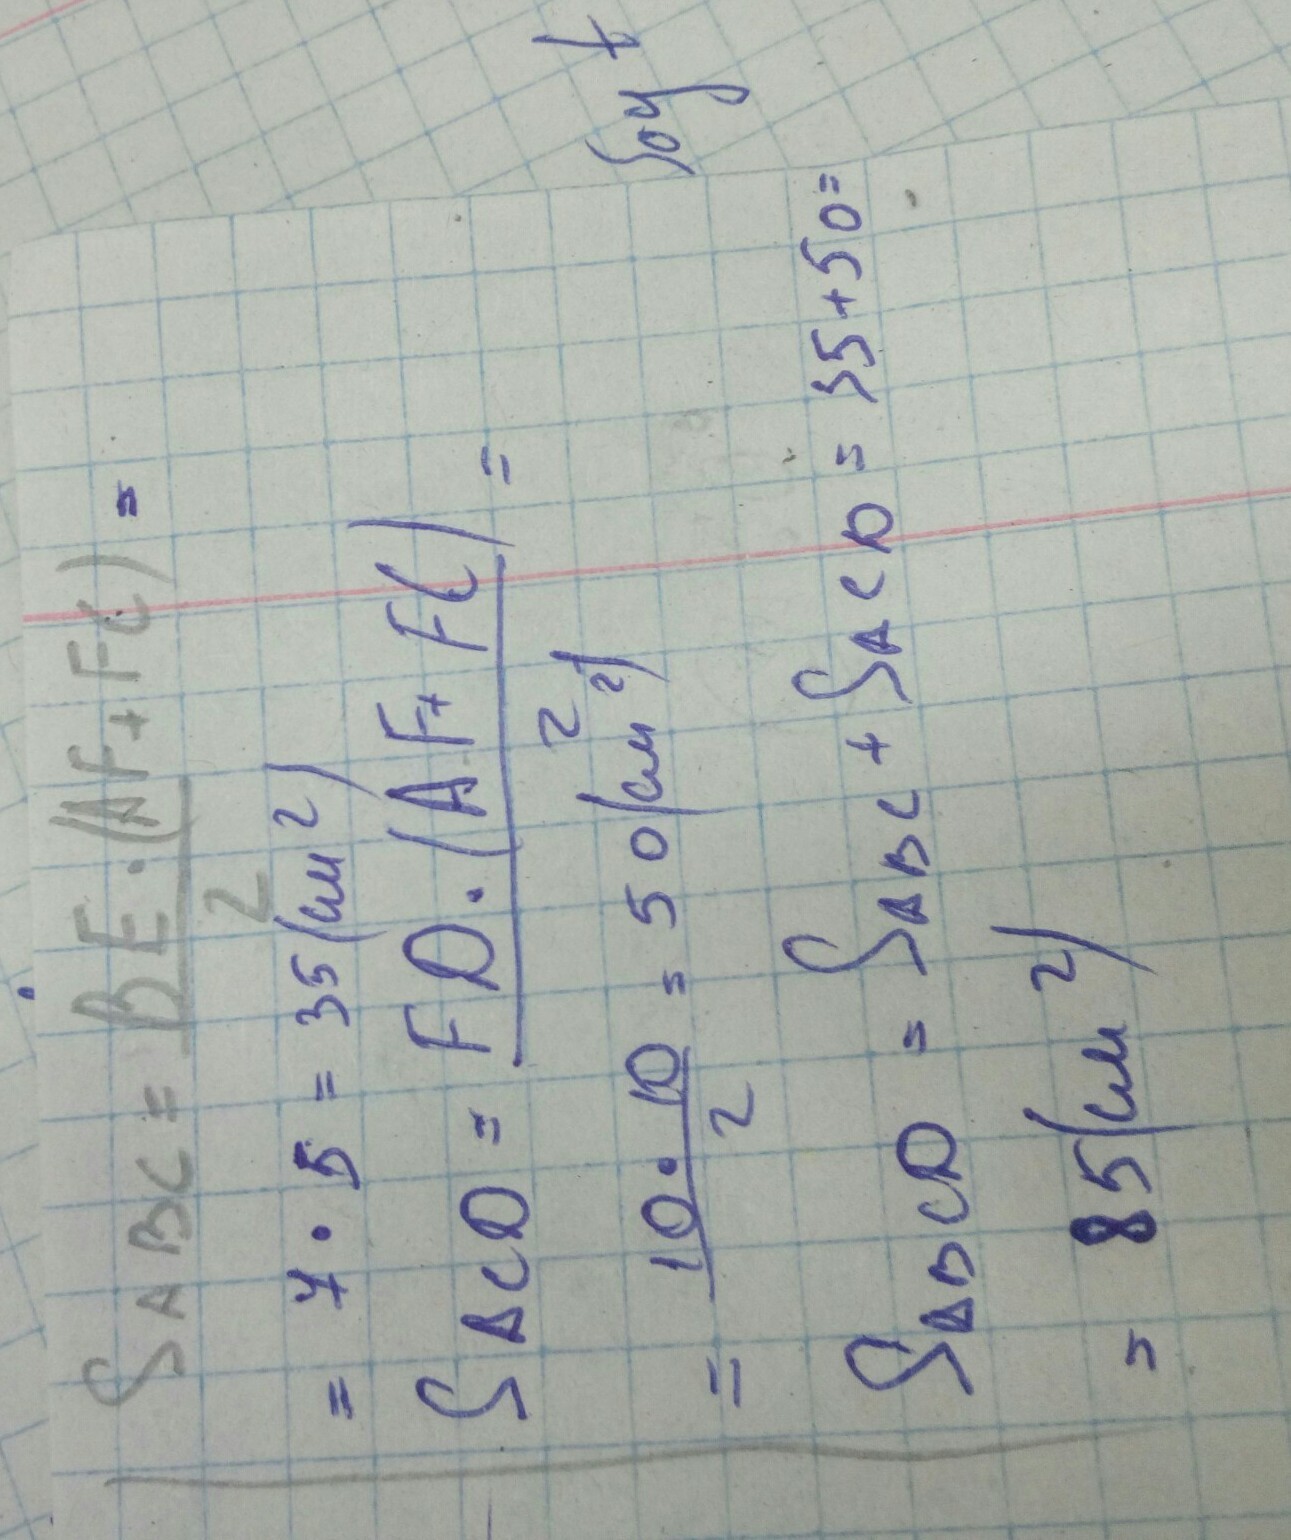 S ABC = BE · (AF + FC) / 2 =
= 7 · 5 = 35 (см²)
S ACD = FD · (AF + FC) / 2 =
= 10 · 10 / 2 = 50 (см²)
S ABCD = S ABC + S ACD = 35 + 50 =
= 85 (см²)